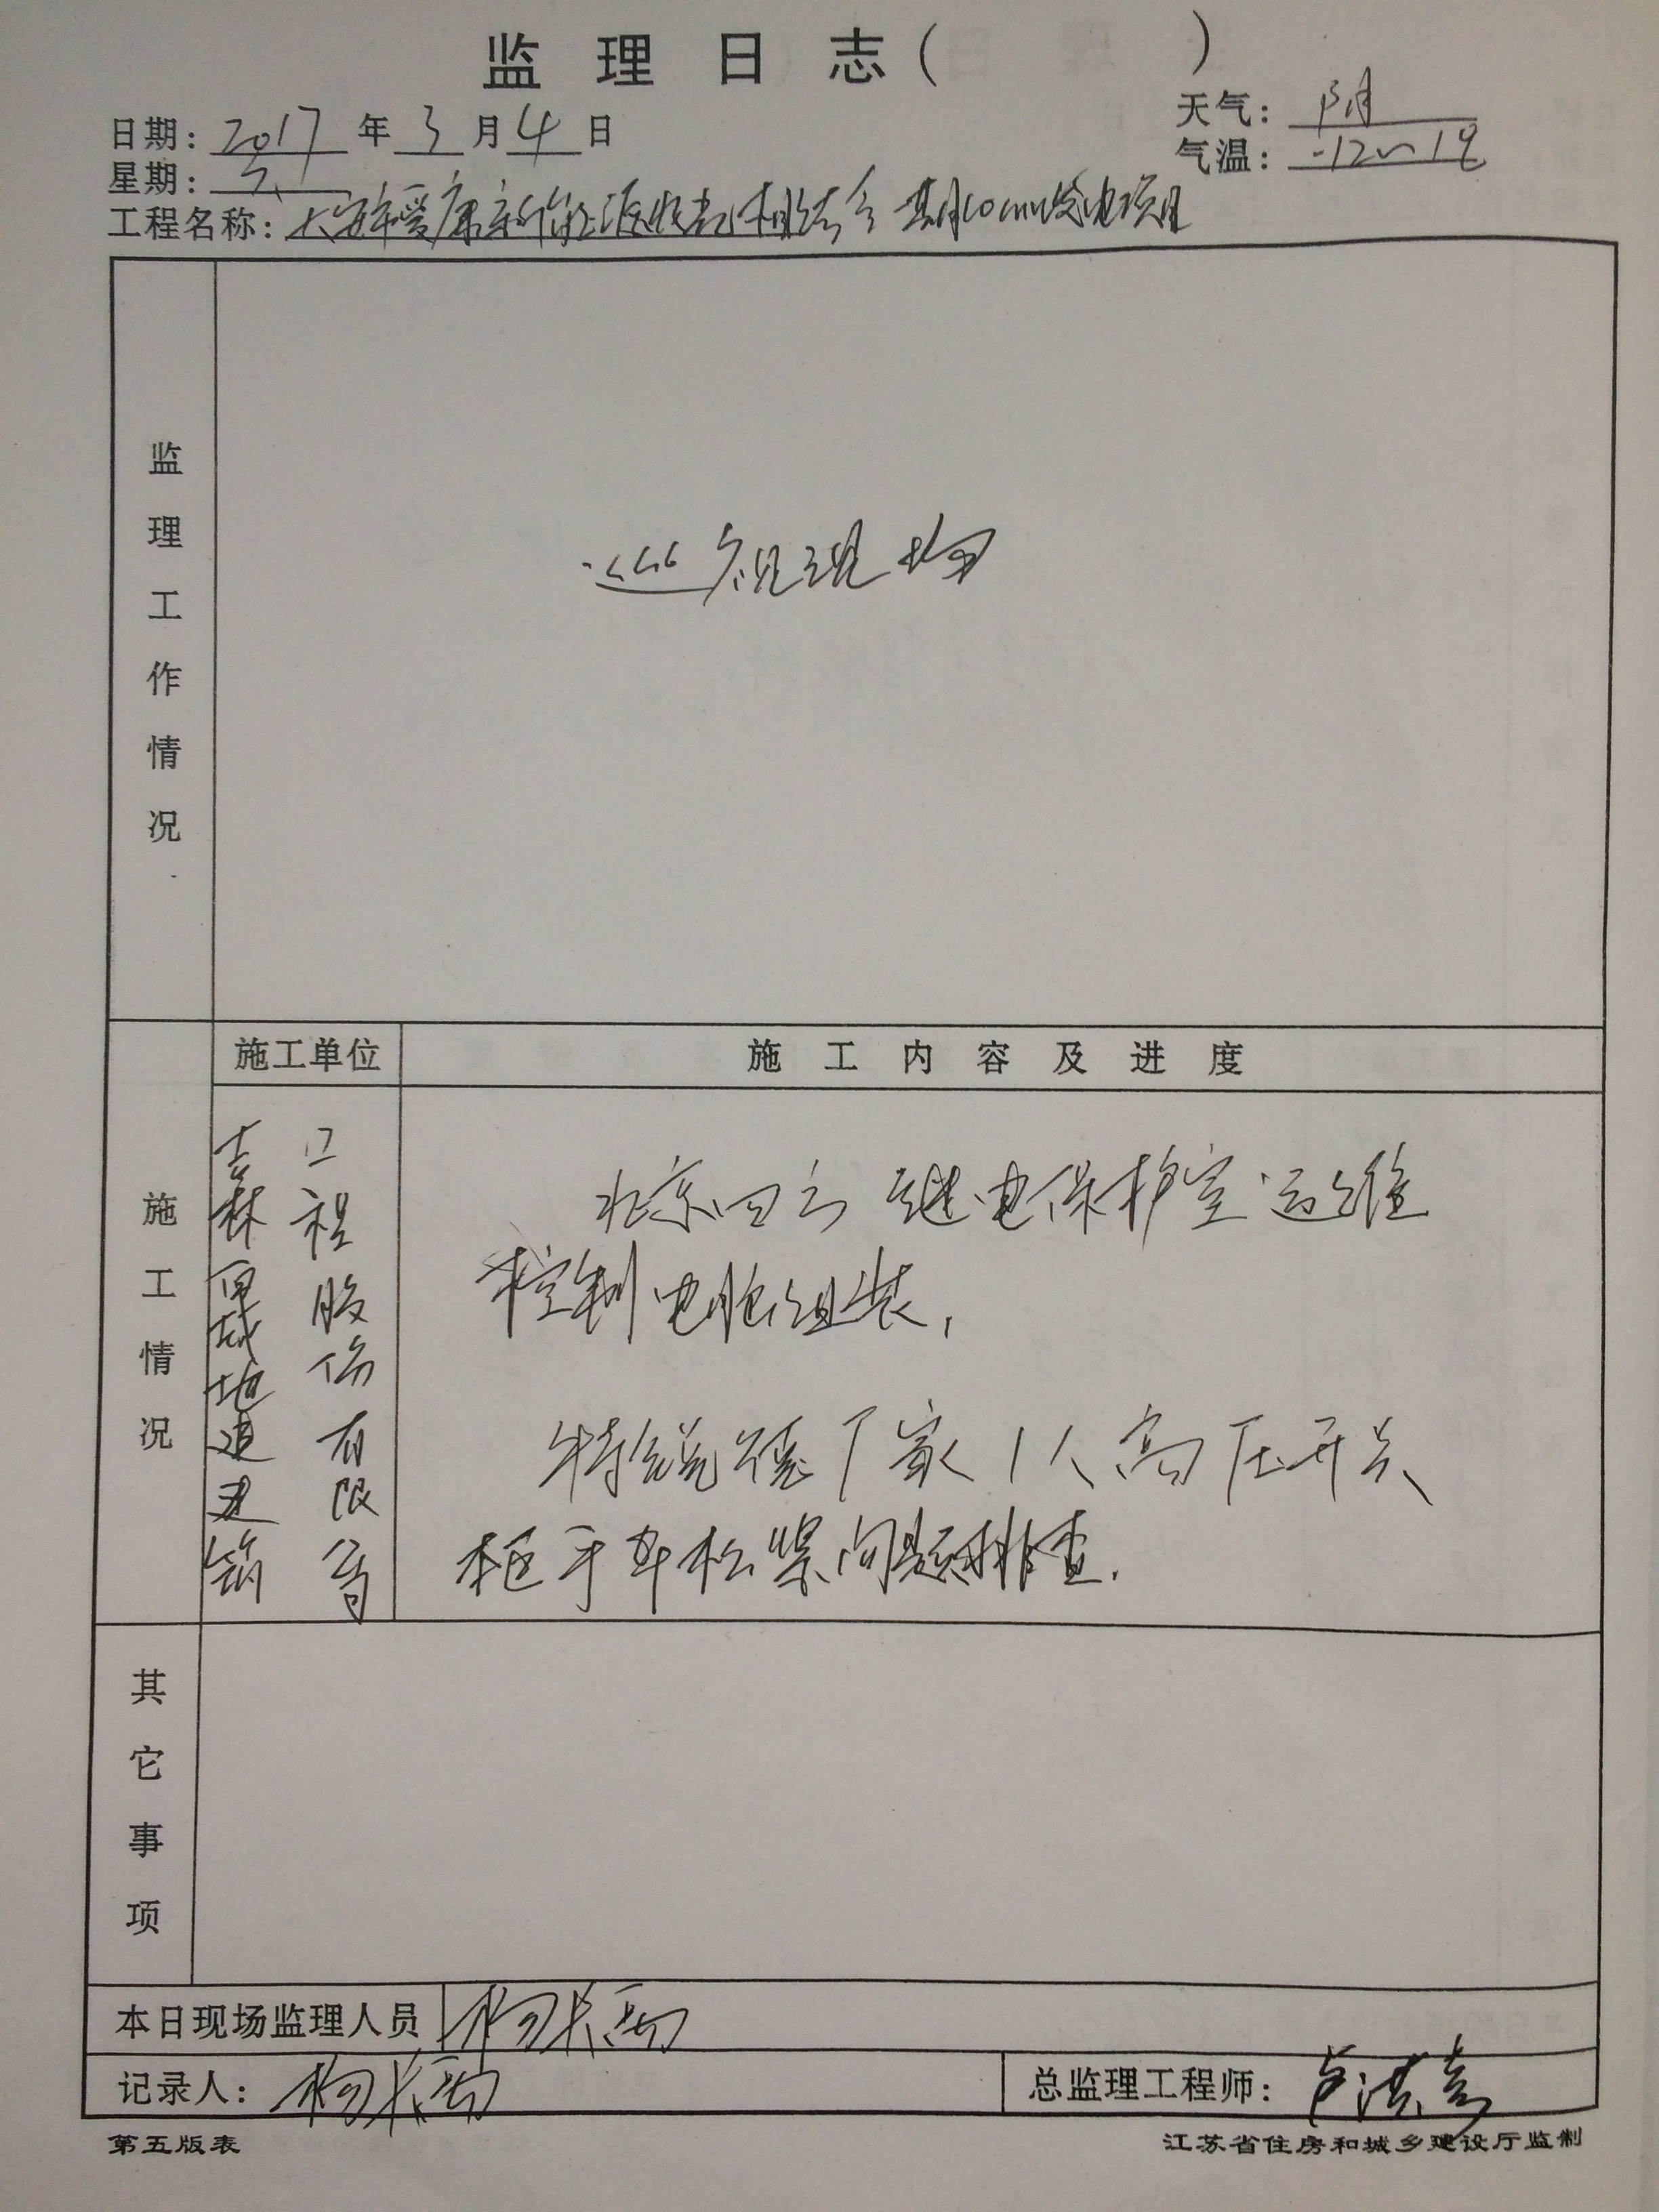 监理日志(　　)
日期: 2017 年 3 月 4 日
天气: 阴
星期: 六
气温: -12~-1℃
工程名称: 大安市 新能源 相结合 发电项目
监理工作情况
巡视现场
施工单位
施工内容及进度
施工情况
吉林 地道建筑
工程股份有限公司
北京四方 继电保护室运维
控制电脑组装,
特 德厂家1人高压开关
柜手车松紧问题排查.
其它事项
本日现场监理人员 杨
记录人: 杨
总监理工程师: 卢洪
第五版表
江苏省住房和城乡建设厅监制